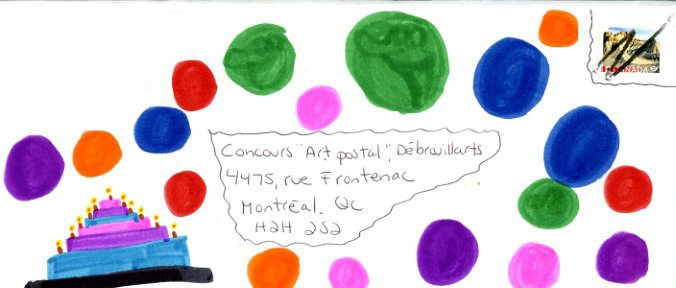 Concours "Art postal", Débrouillarts
4475, rue Frontenac
Montréal. QC
H2H 2S2
CANADA